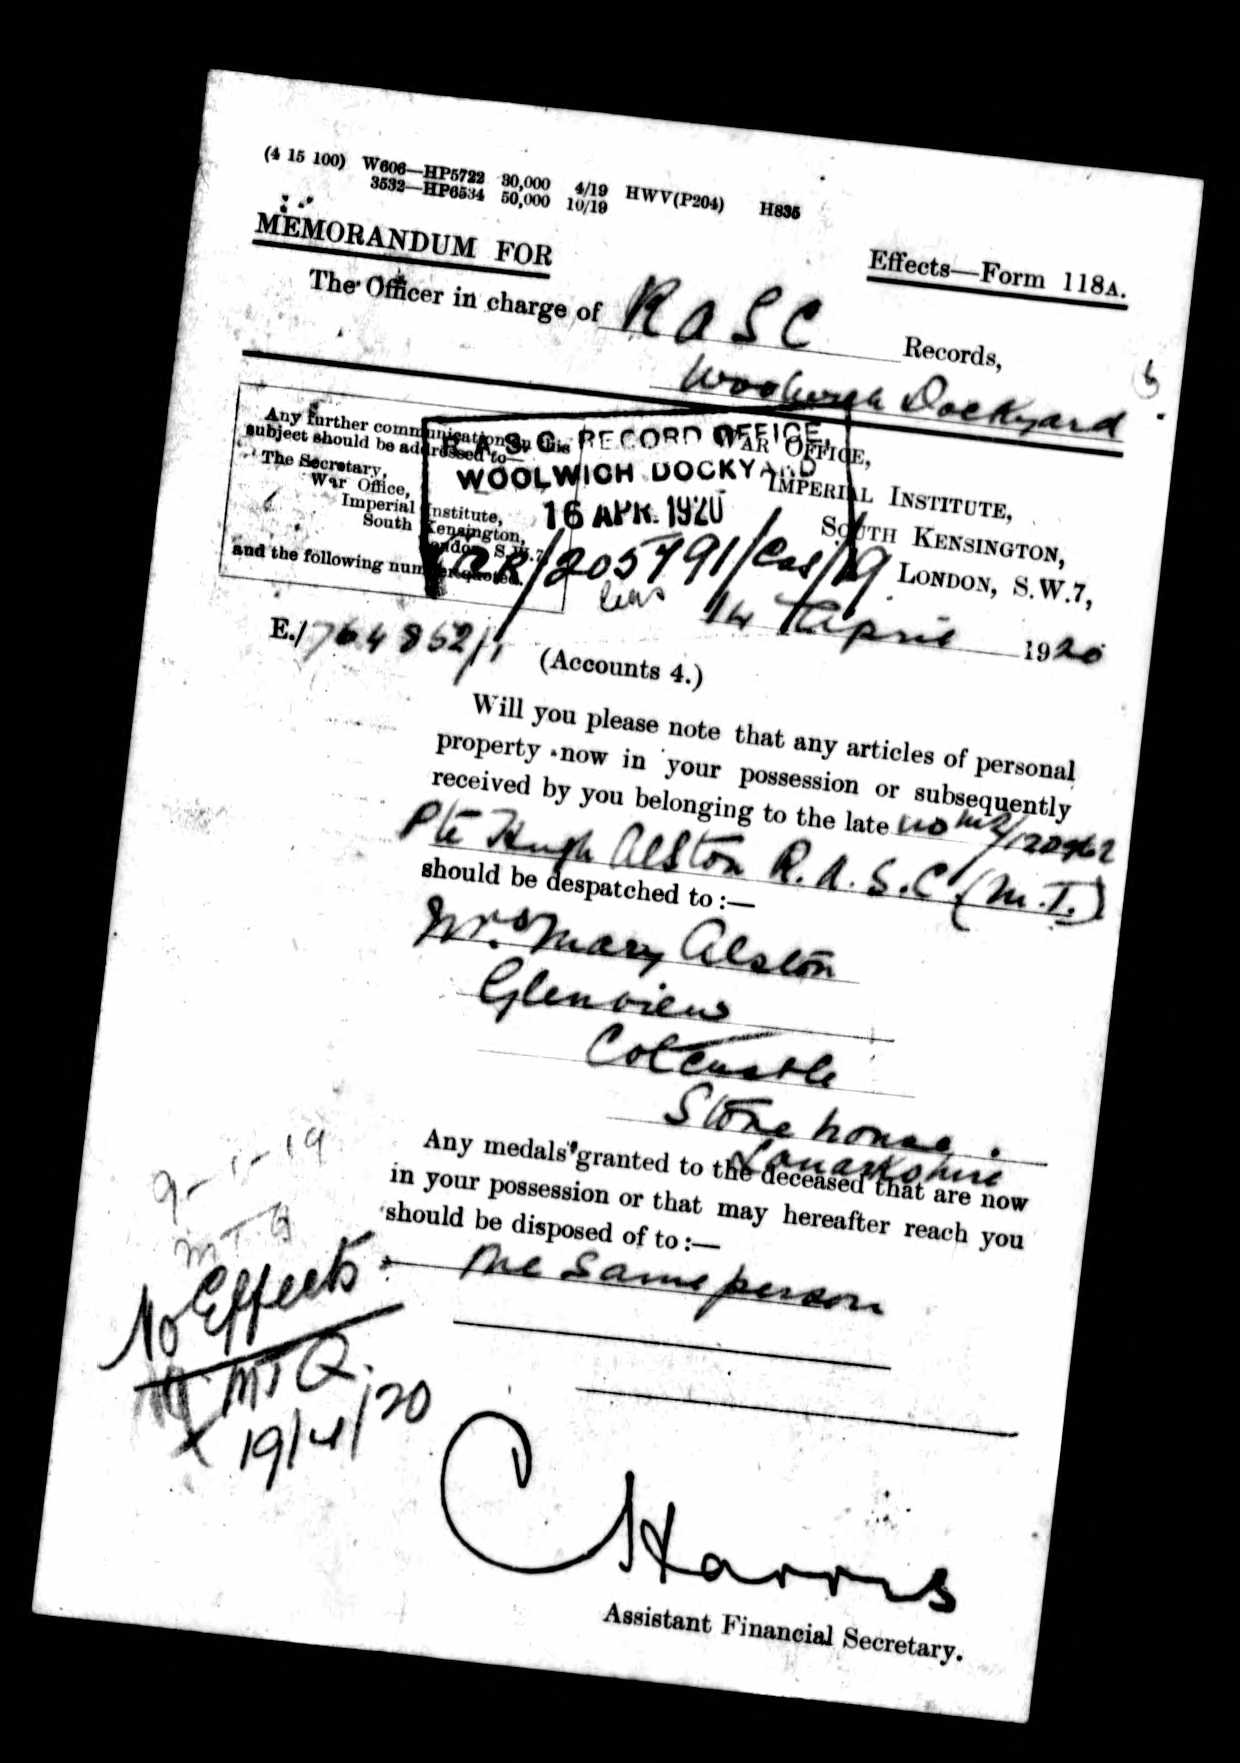 (4 15 100) W606—HP5722 30,000 4/19 HWV(P204) H835
3532—HP6534 50,000 10/19
MEMORANDUM FOR
Effects—Form 118A.
The Officer in charge of R A S C Records,
Woolwich Dockyard
Any further communication on this
subject should be addressed to—
The Secretary,
War Office,
Imperial Institute,
South Kensington,
London, S.W.7
and the following number quoted.
R.A.S.C. RECORD OFFICE,
WOOLWICH DOCKYARD
16 APR. 1920
/205791/Cas/19
WAR OFFICE,
IMPERIAL INSTITUTE,
SOUTH KENSINGTON,
LONDON, S.W.7,
14 April 1920
E./764852/1
(Accounts 4.)
Will you please note that any articles of personal
property now in your possession or subsequently
received by you belonging to the late No M2/
Pte Hugh Alston R.A.S.C. (M.T.)
should be despatched to :—
Mrs Mary Alston
Glenview
Cotcastle
Stonehouse
Lanarkshire
Any medals granted to the deceased that are now
in your possession or that may hereafter reach you
should be disposed of to :—
The same person
9-1-19
No Effects
MTQ.
19/4/20
C Harris
Assistant Financial Secretary.